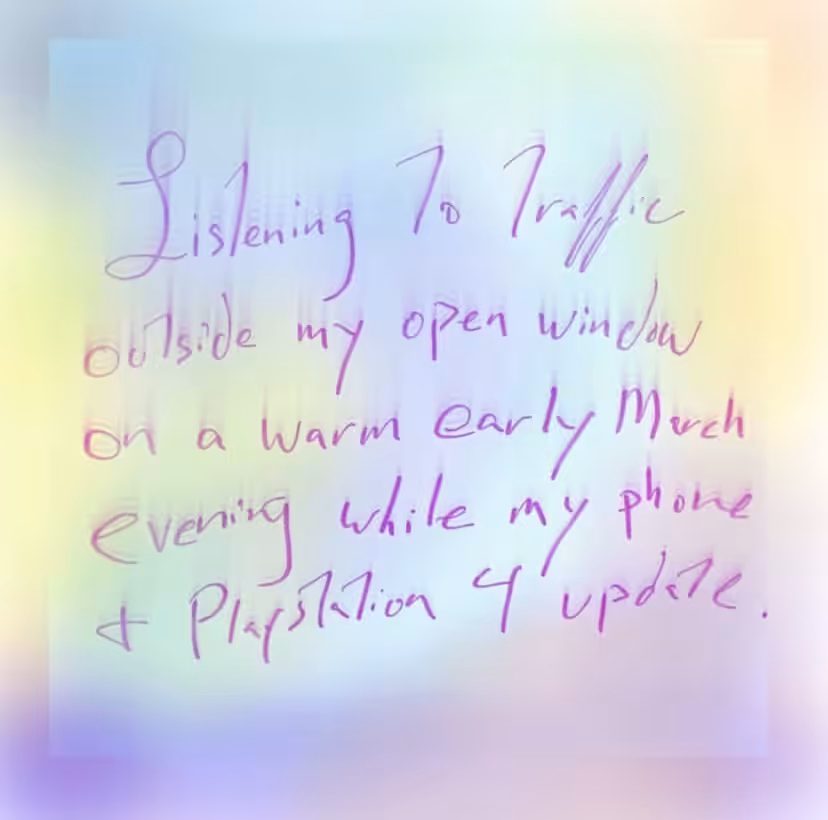 Listening To Traffic
outside my open window
on a warm early March
evening while my phone
+ Playstation 4 update.